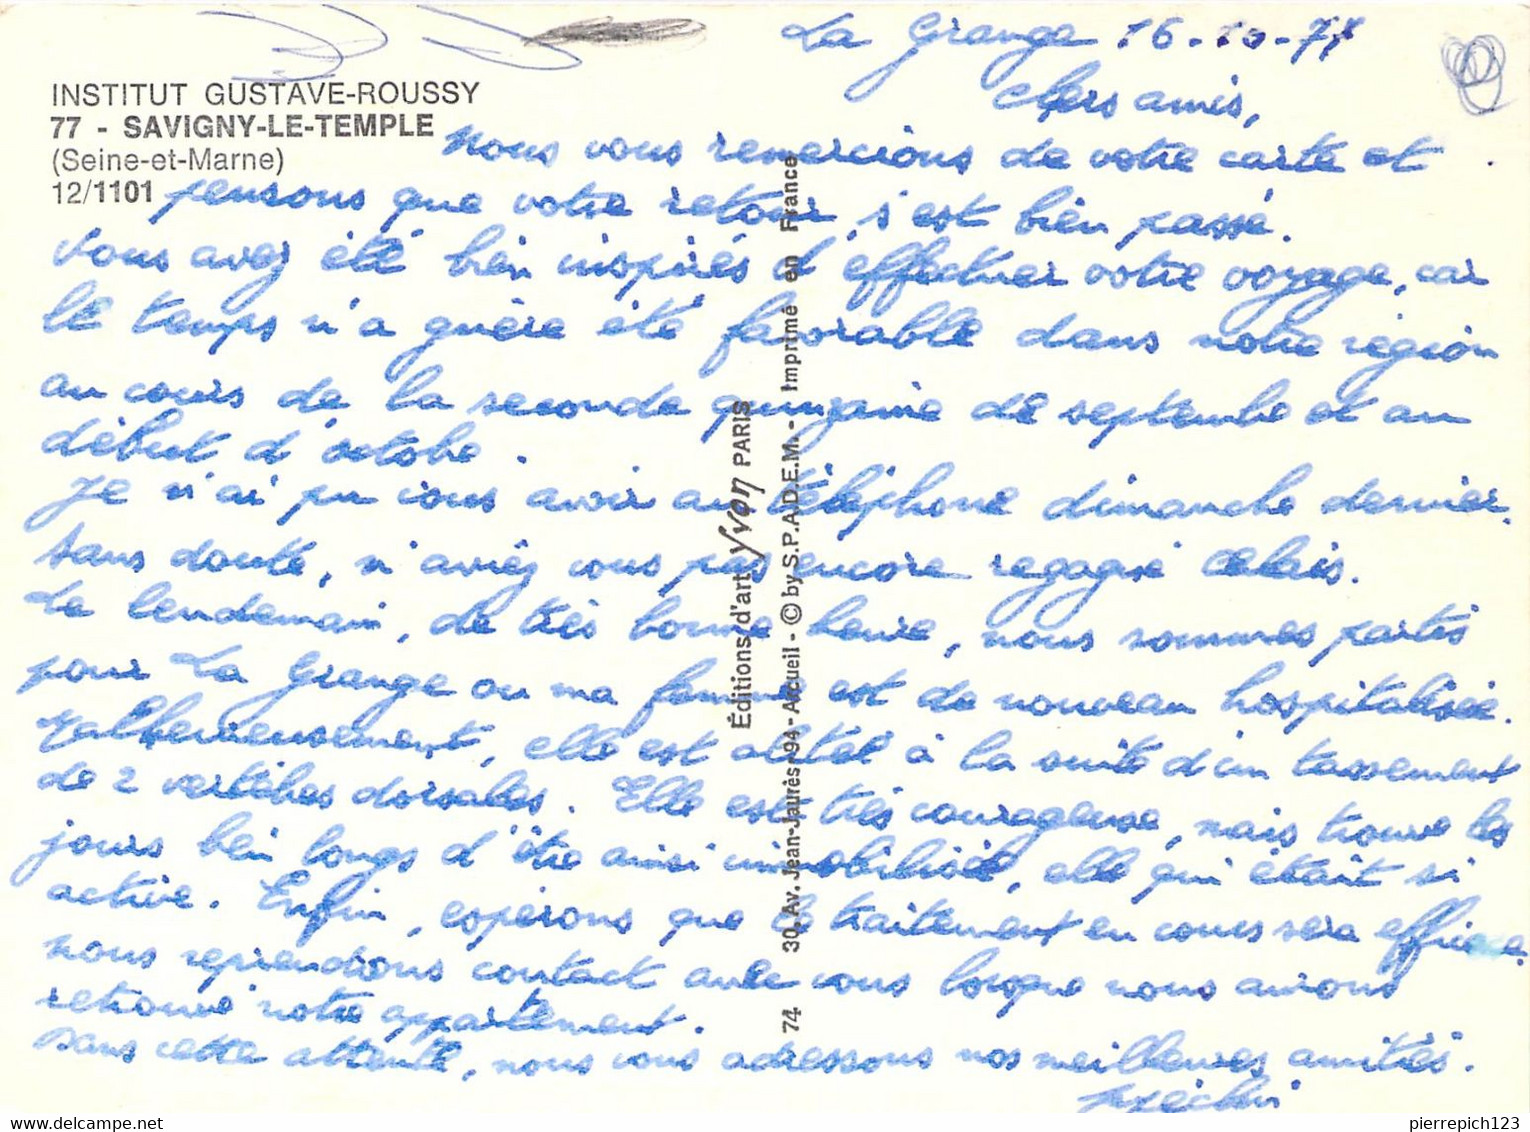 La Grange 16-10-77
INSTITUT GUSTAVE-ROUSSY
77 - SAVIGNY-LE-TEMPLE
(Seine-et-Marne)
12/1101
Chers amis,
Nous vous remercions de votre carte et
pensons que votre retour s'est bien passé.
Vous avez été bien inspirés d'effectuer votre voyage, car
le temps n'a guère été favorable dans notre région
au cours de la seconde quinzaine de septembre et au
début d'octobre.
Je n'ai pu vous avoir au téléphone dimanche dernier.
Sans doute, n'aviez vous pas encore regagné Calais.
Le lendemain, de très bonne heure, nous sommes partis
pour La Grange ou ma femme est de nouveau hospitalisée.
Malheureusement, elle est alitée à la suite d'un tassement
de 2 vertèbres dorsales. Elle est très courageuse, mais trouve les
jours bien longs d'être ainsi immobilisée, elle qui était si
active. Enfin, espérons que le traitement en cours sera efficace.
Nous reprendrons contact avec vous lorsque nous aurons
retrouvé notre appartement.
Dans cette attente, nous vous adressons nos meilleures amitiés.
Éditions d'art Yvon PARIS
30, Av. Jean-Jaurès-94-Arcueil - © by S.P.A.D.E.M. - Imprimé en France
74
pierrepich123